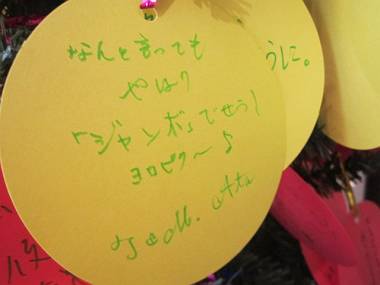 なんと言っても
やはり
「ジャンボ」でせう!
ヨロピク〜♪
うしこ。